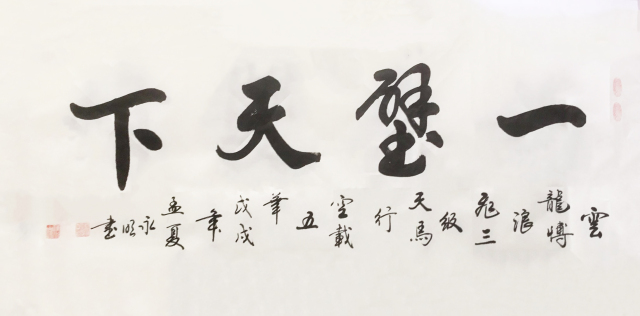 一璧天下
雲龍搏浪飛三級天馬行空載五華戊戌年孟夏永明書